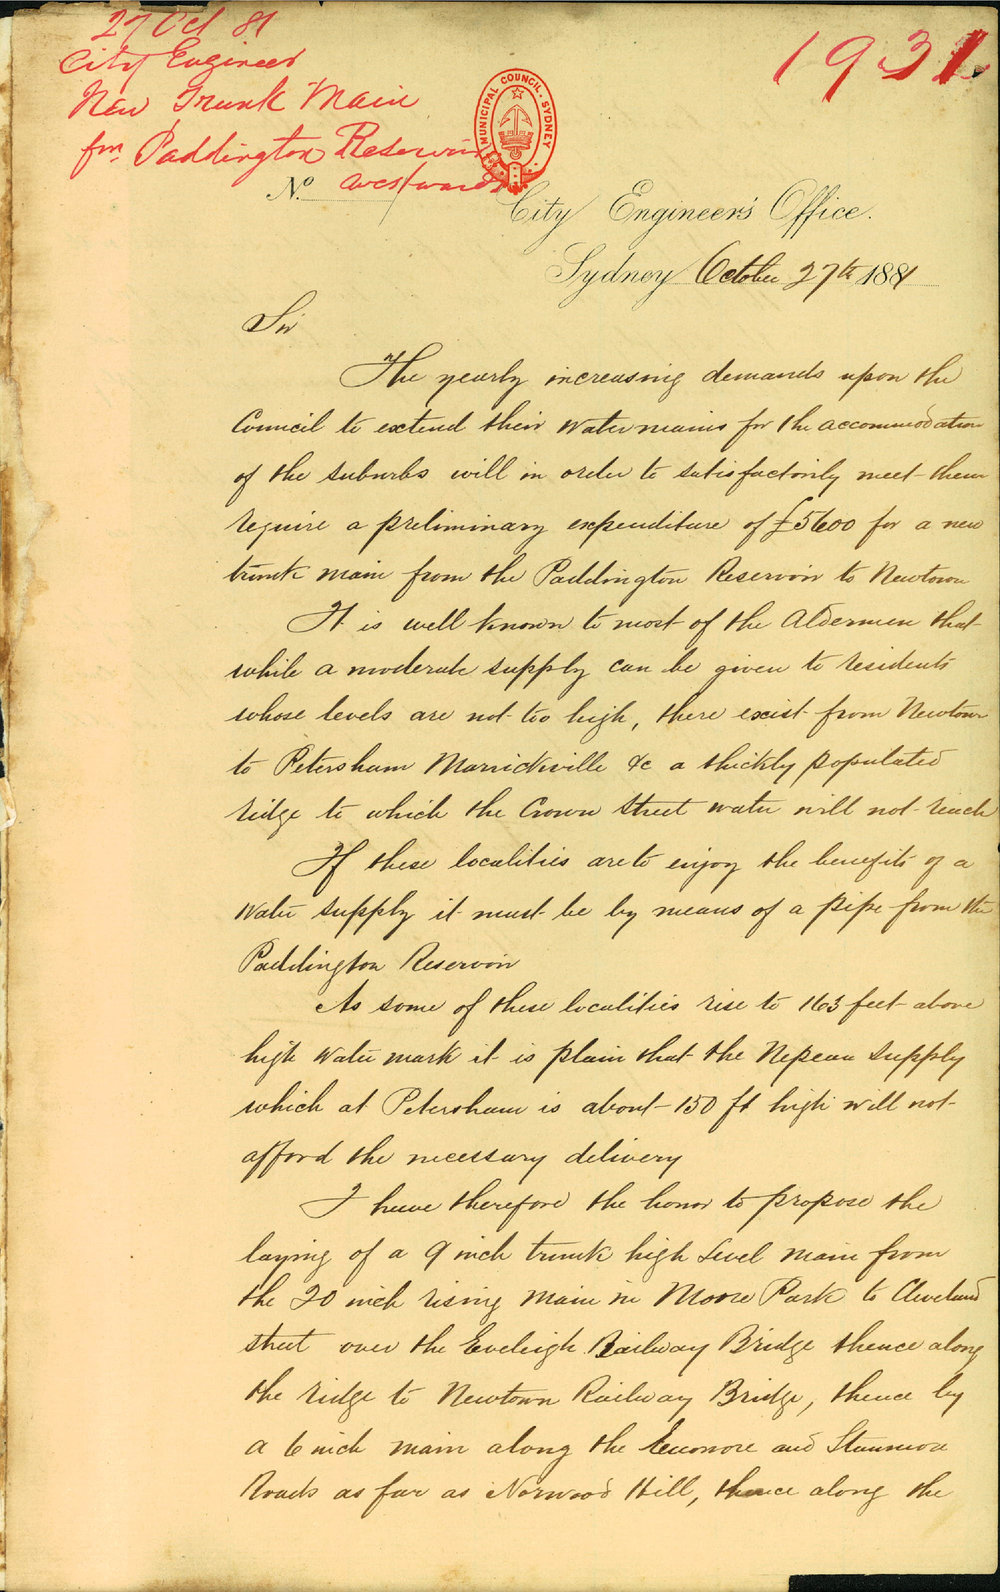 27 Oct 81
City Engineer
New Trunk Main
fm Paddington Reservoir
westwards
1931
MUNICIPAL COUNCIL. SYDNEY
No.
City Engineer's Office.
Sydney October 27th 1881
Sir
The yearly increasing demands upon the
Council to extend their water mains for the accommodation
of the suburbs will in order to satisfactorily meet them
require a preliminary expenditure of £5600 for a new
trunk main from the Paddington Reservoir to Newtown
It is well known to most of the Aldermen that
while a moderate supply can be given to residents
whose levels are not too high, there exist from Newtown
to Petersham Marrickville &c a thickly populated
ridge to which the Crown Street water will not reach
If these localities are to enjoy the benefits of a
water supply it must be by means of a pipe from the
Paddington Reservoir
As some of these localities rise to 163 feet above
high water mark it is plain that the Nepean supply
which at Petersham is about 150 ft high will not
afford the necessary delivery
I have therefore the honor to propose the
laying of a 9 inch trunk high level main from
the 20 inch rising main in Moore Park to Cleveland
street over the Eveleigh Railway Bridge thence along
the ridge to Newtown Railway Bridge, thence by
a 6 inch main along the Enmore and Stanmore
Roads as far as Norwood Hill, thence along the